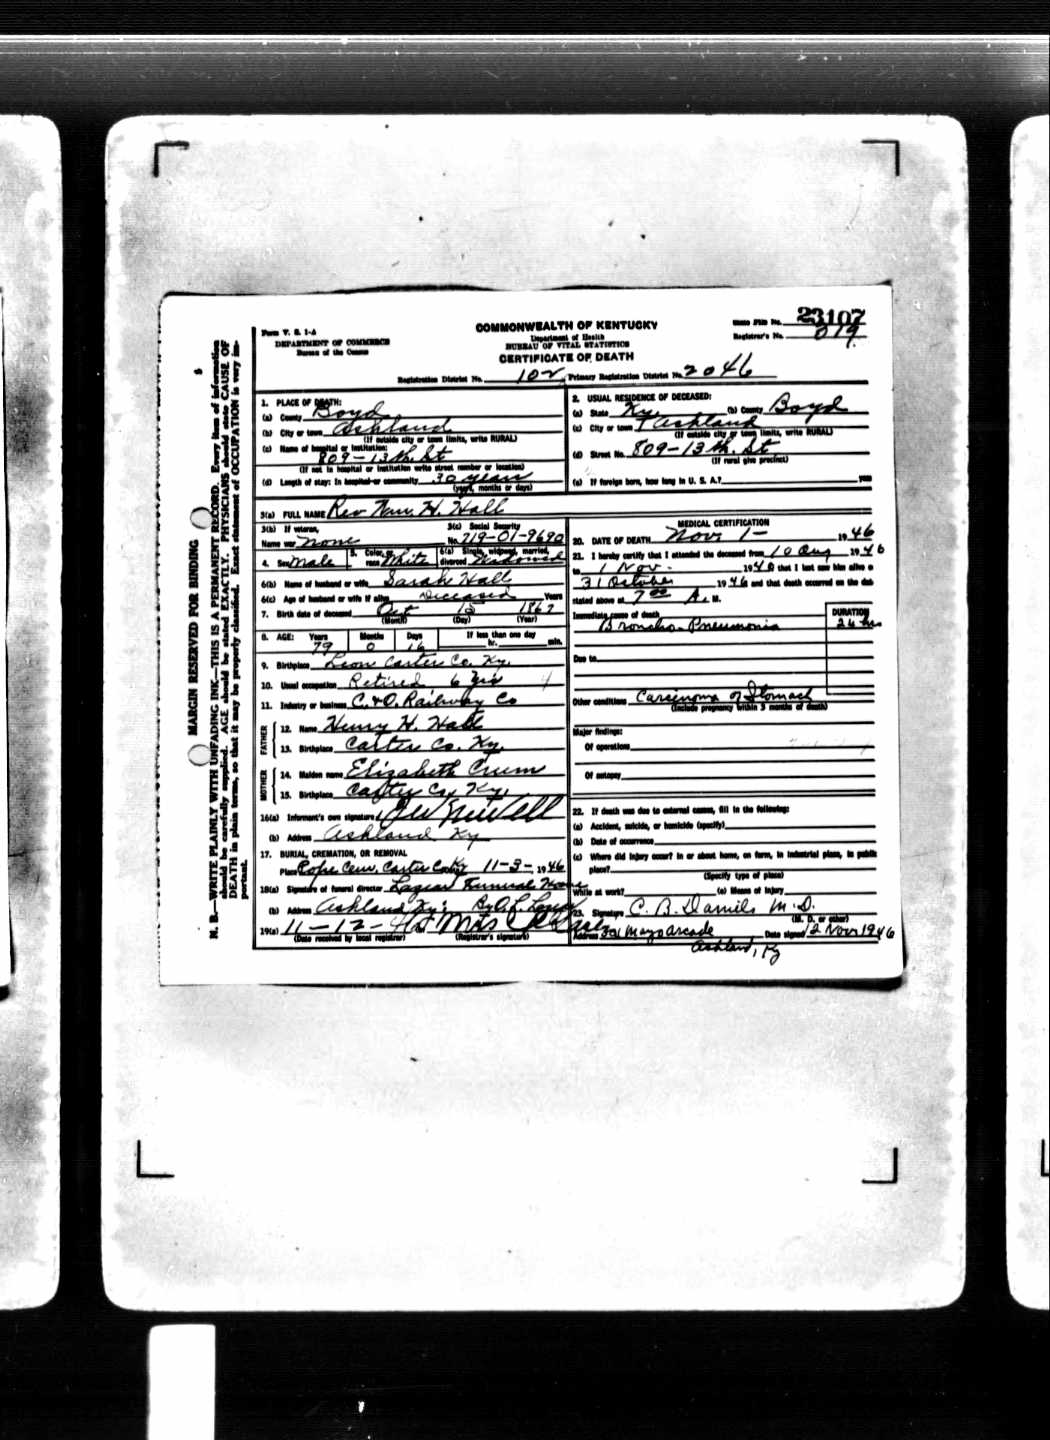 Form V. S. 1-A
DEPARTMENT OF COMMERCE
Bureau of the Census
COMMONWEALTH OF KENTUCKY
Department of Health
BUREAU OF VITAL STATISTICS
CERTIFICATE OF DEATH
State File No. 23107
Registrar's No. 019
Registration District No. 102 Primary Registration District No. 2046
MARGIN RESERVED FOR BINDING
N. B.—WRITE PLAINLY WITH UNFADING INK—THIS IS A PERMANENT RECORD. Every item of information
should be carefully supplied. AGE should be stated EXACTLY. PHYSICIANS should state CAUSE OF
DEATH in plain terms, so that it may be properly classified. Exact statement of OCCUPATION is very im-
portant.
1. PLACE OF DEATH:
(a) County Boyd
(b) City or town Ashland
(If outside city or town limits, write RURAL)
(c) Name of hospital or institution:
809-13th. St
(If not in hospital or institution write street number or location)
(d) Length of stay: In hospital or community 30 years
(years, months or days)
2. USUAL RESIDENCE OF DECEASED:
(a) State Ky. (b) County Boyd
(c) City or town Ashland
(If outside city or town limits, write RURAL)
(d) Street No. 809-13th. St
(If rural give precinct)
(e) If foreign born, how long in U. S. A.? years
3(a) FULL NAME Rev Wm. H. Hall
3(b) If veteran,
Name war none
3(c) Social Security
No. 719-01-9690
4. Sex Male
5. Color or
race White
6(a) Single, widowed, married,
divorced Widowed
6(b) Name of husband or wife Sarah Hall
6(c) Age of husband or wife if alive Deceased Years
7. Birth date of deceased Oct 15 1867
(Month) (Day) (Year)
8. AGE: Years Months Days If less than one day
79 0 16 hr. min.
9. Birthplace Leon Carter Co. Ky.
10. Usual occupation Retired 6 yrs
11. Industry or business C. & O. Railway Co
FATHER
12. Name Henry H. Hall
13. Birthplace Carter Co. Ky.
MOTHER
14. Maiden name Elizabeth Crum
15. Birthplace Carter Co. Ky.
16(a) Informant's own signature
(b) Address Ashland Ky
17. BURIAL, CREMATION, OR REMOVAL
Place Pope Cem. Carter Co Ky 11-3-1946
18(a) Signature of funeral director Lazear Funeral Home
(b) Address Ashland Ky.
19(a) 11-12- Mrs
(Date received by local registrar) (Registrar's signature)
MEDICAL CERTIFICATION
20. DATE OF DEATH Nov 1- 1946
21. I hereby certify that I attended the deceased from 10 Aug 1946
to 1 Nov. 1946 that I last saw him alive o
31 October 1946 and that death occurred on the dat
stated above at 7 00 A. M.
Immediate cause of death DURATION
Broncho-Pneumonia 24 hrs
Due to
Other conditions Carcinoma of Stomach
(Include pregnancy within 3 months of death)
Major findings:
Of operations
Of autopsy
22. If death was due to external causes, fill in the following:
(a) Accident, suicide, or homicide (specify)
(b) Date of occurrence
(c) Where did injury occur? In or about home, on farm, in industrial place, in public
place?
(Specify type of place)
While at work? (e) Means of injury
23. Signature C. B. Daniels M. D.
(M. D. or other)
Address 301 Mayo Arcade Date signed 12 Nov 1946
Ashland, Ky